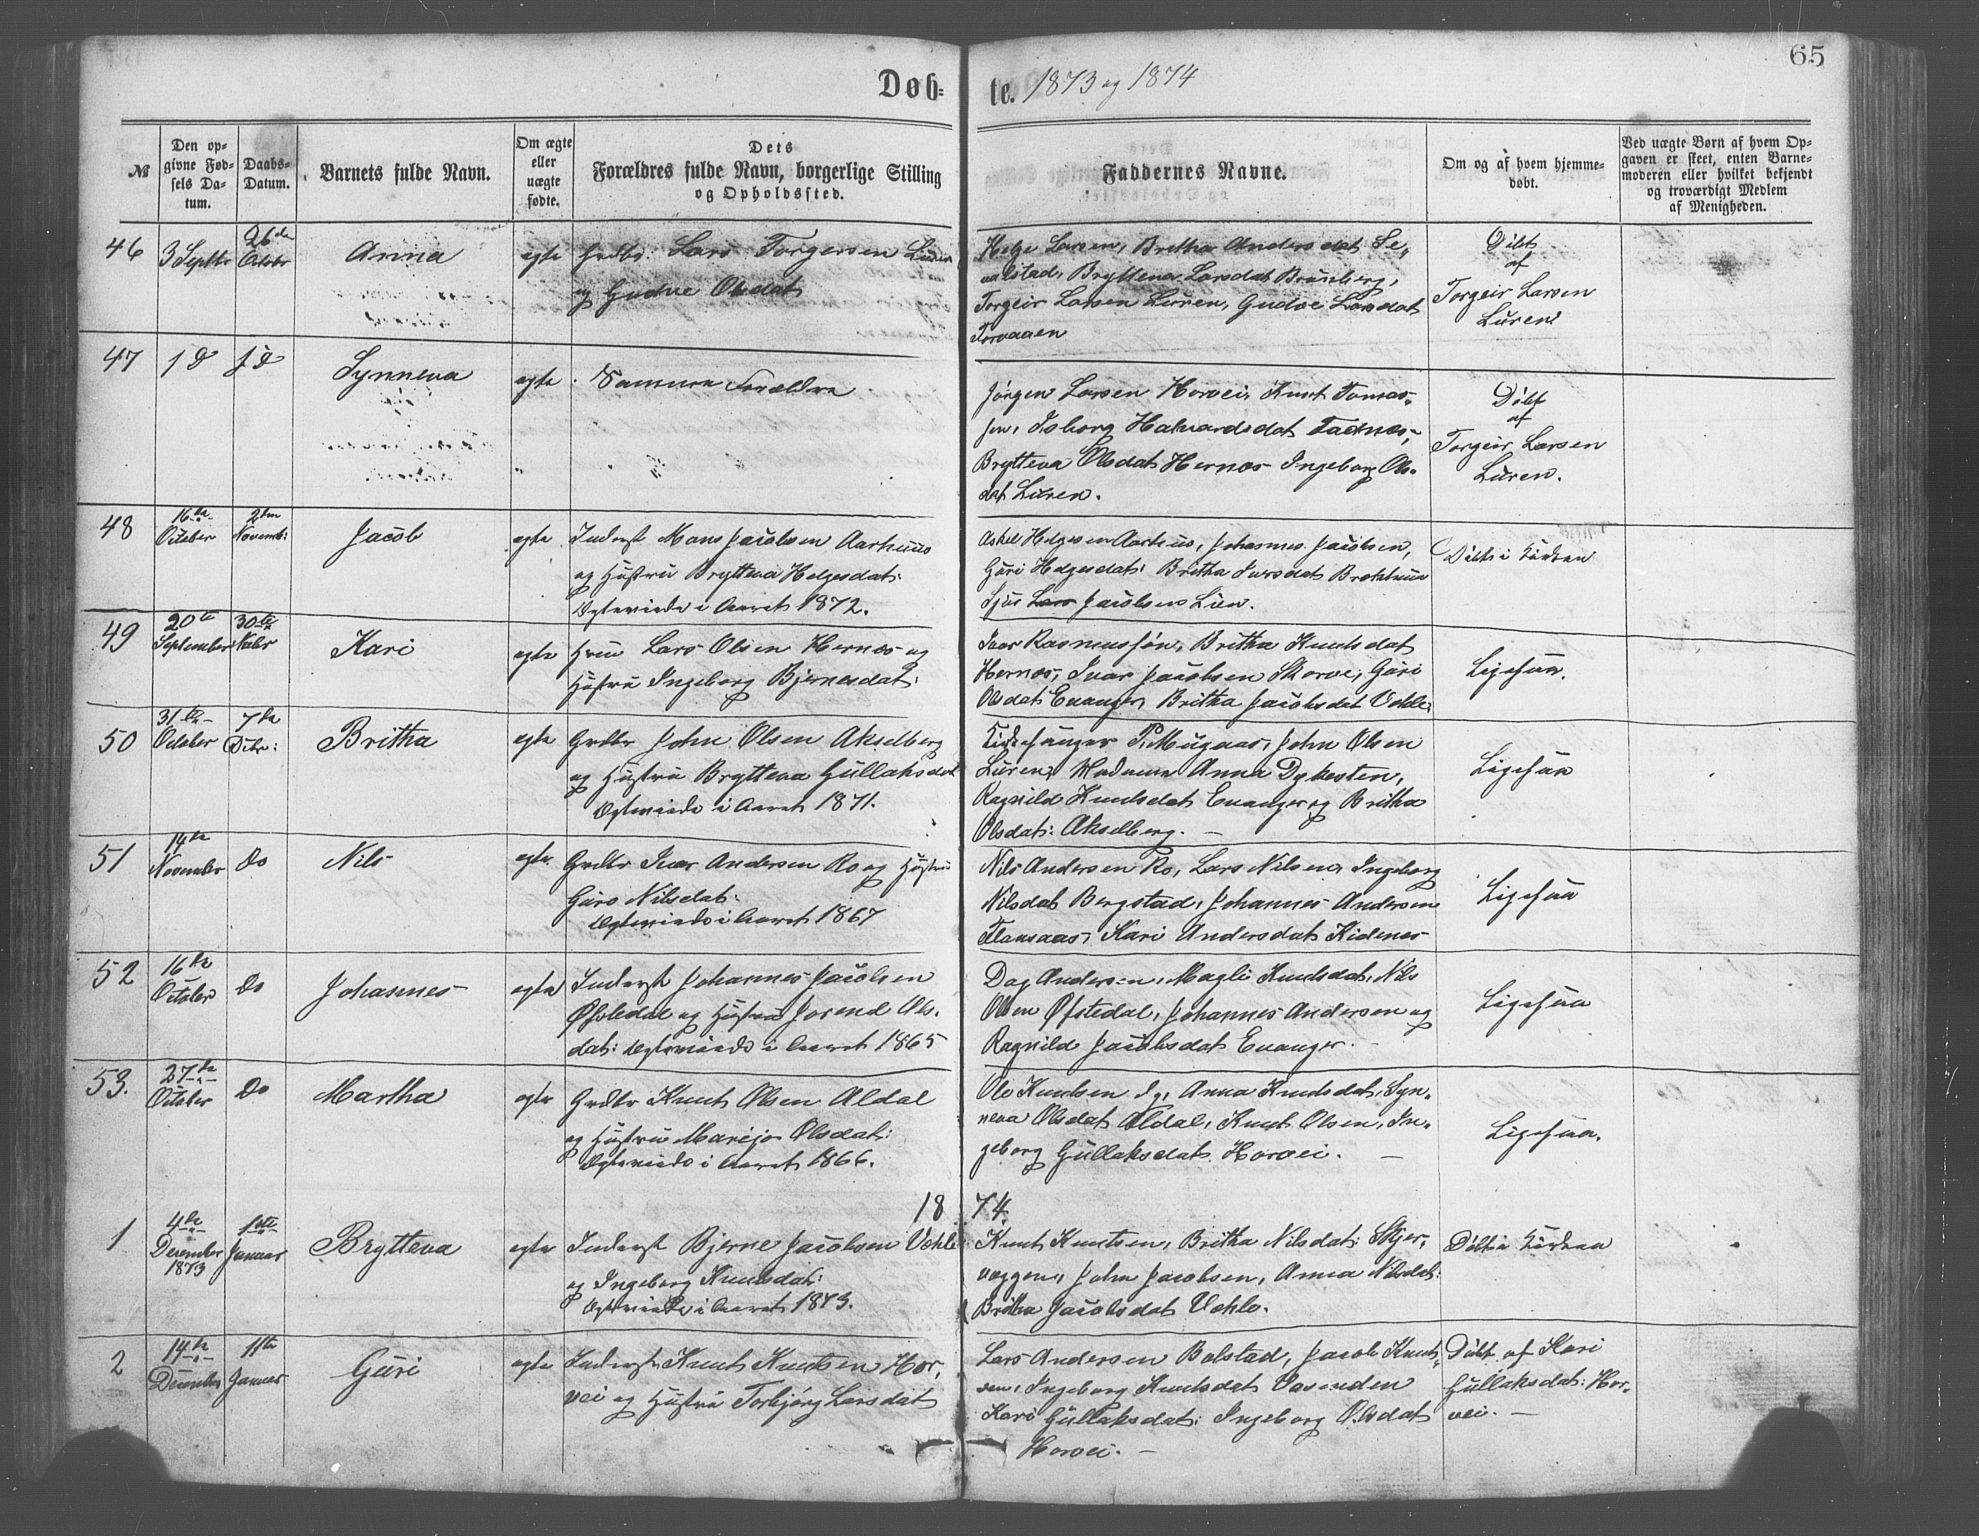 65
Døb-te. 1873 og 1874
№
Den op-
givne Fød-
sels Da-
tum.
Daabs-
Datum.
Barnets fulde Navn.
Om ægte
eller
uægte
fødte.
Dets
Forældres fulde Navn, borgerlige Stilling
og Opholdssted.
Faddernes Navne.
Om og af hvem hjemme-
døbt.
Ved uægte Børn af hvem Op-
gaven er skeet, enten Barne-
moderen eller hvilket bekjendt
og troværdigt Medlem
af Menigheden.
46
3 Septbr
26de
Octobr
Anna
egte
Grdbr: Lars Torgersen Lüren
og Gudve Olsdat
Helge Larsen, Britha Andersdat Se-
valstad, Brytteva Larsdat
Torgeir Larsen Lüren, Gudve Larsdat
Døbt
af
Torgeir Larsen
Lüren
47
1 D
J D
Synneva
egte
Samme Forældre
Jørgen Larsen Horvei, Knut Tomas-
sen, Isborg Halvardsdat
Brytteva Olsdat Hernæs Ingeborg Ols-
dat Lüren.
Døbt
af
Torgeir Larsen
Lüren.
48
16de
October
2den
Novemb:
Jacob
egte
Inderst Mons Jacobsen Aarhuus
og Hustru Brytteva Helgesdat:
Egteviede i Aaret 1872.
Askel Helgesen Aarhus, Johannes Jacobsen,
Guri Helgesdat: Britha Iversdat
Sjur Lars Jacobsens Lien.
Døbt i Kirken
49
20de
September
30te
Nobr
Kari
egte
Lars Olsen Hernæs og
Hustru Ingeborg Bjernesdat:
Ivar Rasmussøn, Britha Knutsdat
Hernæs, Ivar Jacobsen Skorve, Guri
Olsdat Evanger, Britha Jacobsdat Væhle:
Ligesaa.
50
31te
October
7de
Debr:
Britha
egte
Grdbr John Olsen Akselberg
og Hustru Brytteva Gullaksdat
Egteviede i Aaret 1871.
Kirkesanger P. Mugaas, John Olsen
Lüren, Madame Anna Dykesten,
Ragnild Knutsdat Evanger og Britha
Olsdat: Akselberg.
Ligesaa
51
14de
November
Do
Nils
egte
Grdbr Ivar Andersen Ro og Hustru
Guro Nilsdat:
Egteviede i Aaret 1867
Nils Andersen Ro, Lars Nilsen, Ingeborg
Nilsdat Bergstad, Johannes Andersen
Flansaas, Kari Andersdat Kidenes
Ligesaa
52
16de
October
Do
Johannes
egte
Inderst Johannes Jacobsen
Øfstedal og Hustru Jorend Ols-
dat: Egteviede i Aaret 1865
Dag Andersen, Magli Knutsdat, Nils
Olsen Øfstedal, Johannes Andersen og
Ragnild Jacobsdat Evanger.
Ligesaa
53.
27de
October
Do
Martha
egte
Grdbr Knut Olsen Aldal
og Hustru Marijo Olsdat:
Egteviede i Aaret 1866.
Ole Knutsen Anna Knutsdat, Syn-
neva Olsdat Aldal, Knut Olsen, In-
geborg Gullaksdat Horvei.
Ligesaa.
18 74.
1
4de
December
1873
1ste
Januar
Brytteva
egte
Inderst Bjerne Jacobsen Væhle
og Ingeborg Knutsdat:
Egteviede i Aaret 1873.
Knut Knutsen, Britha Nilsdat: Skjer-
veggen, John Jacobsen, Anna Nilsdat:
Britha Jacobsdat Væhle.
Døbt i Kirken
2
14de
December
11te
Januar
Guri
egte
Inderst Knut Knutsen Hor-
vei og Hustru Torbjørg Larsdat
Lars Andersen Bolstad, Jacob Knut-
sen, Ingeborg Knutsdat Vasenden
Kari Gullaksdat: Ingeborg Olsdat
Horvei.
Døbt af Kari
Gullaksdat: Hor-
vei.